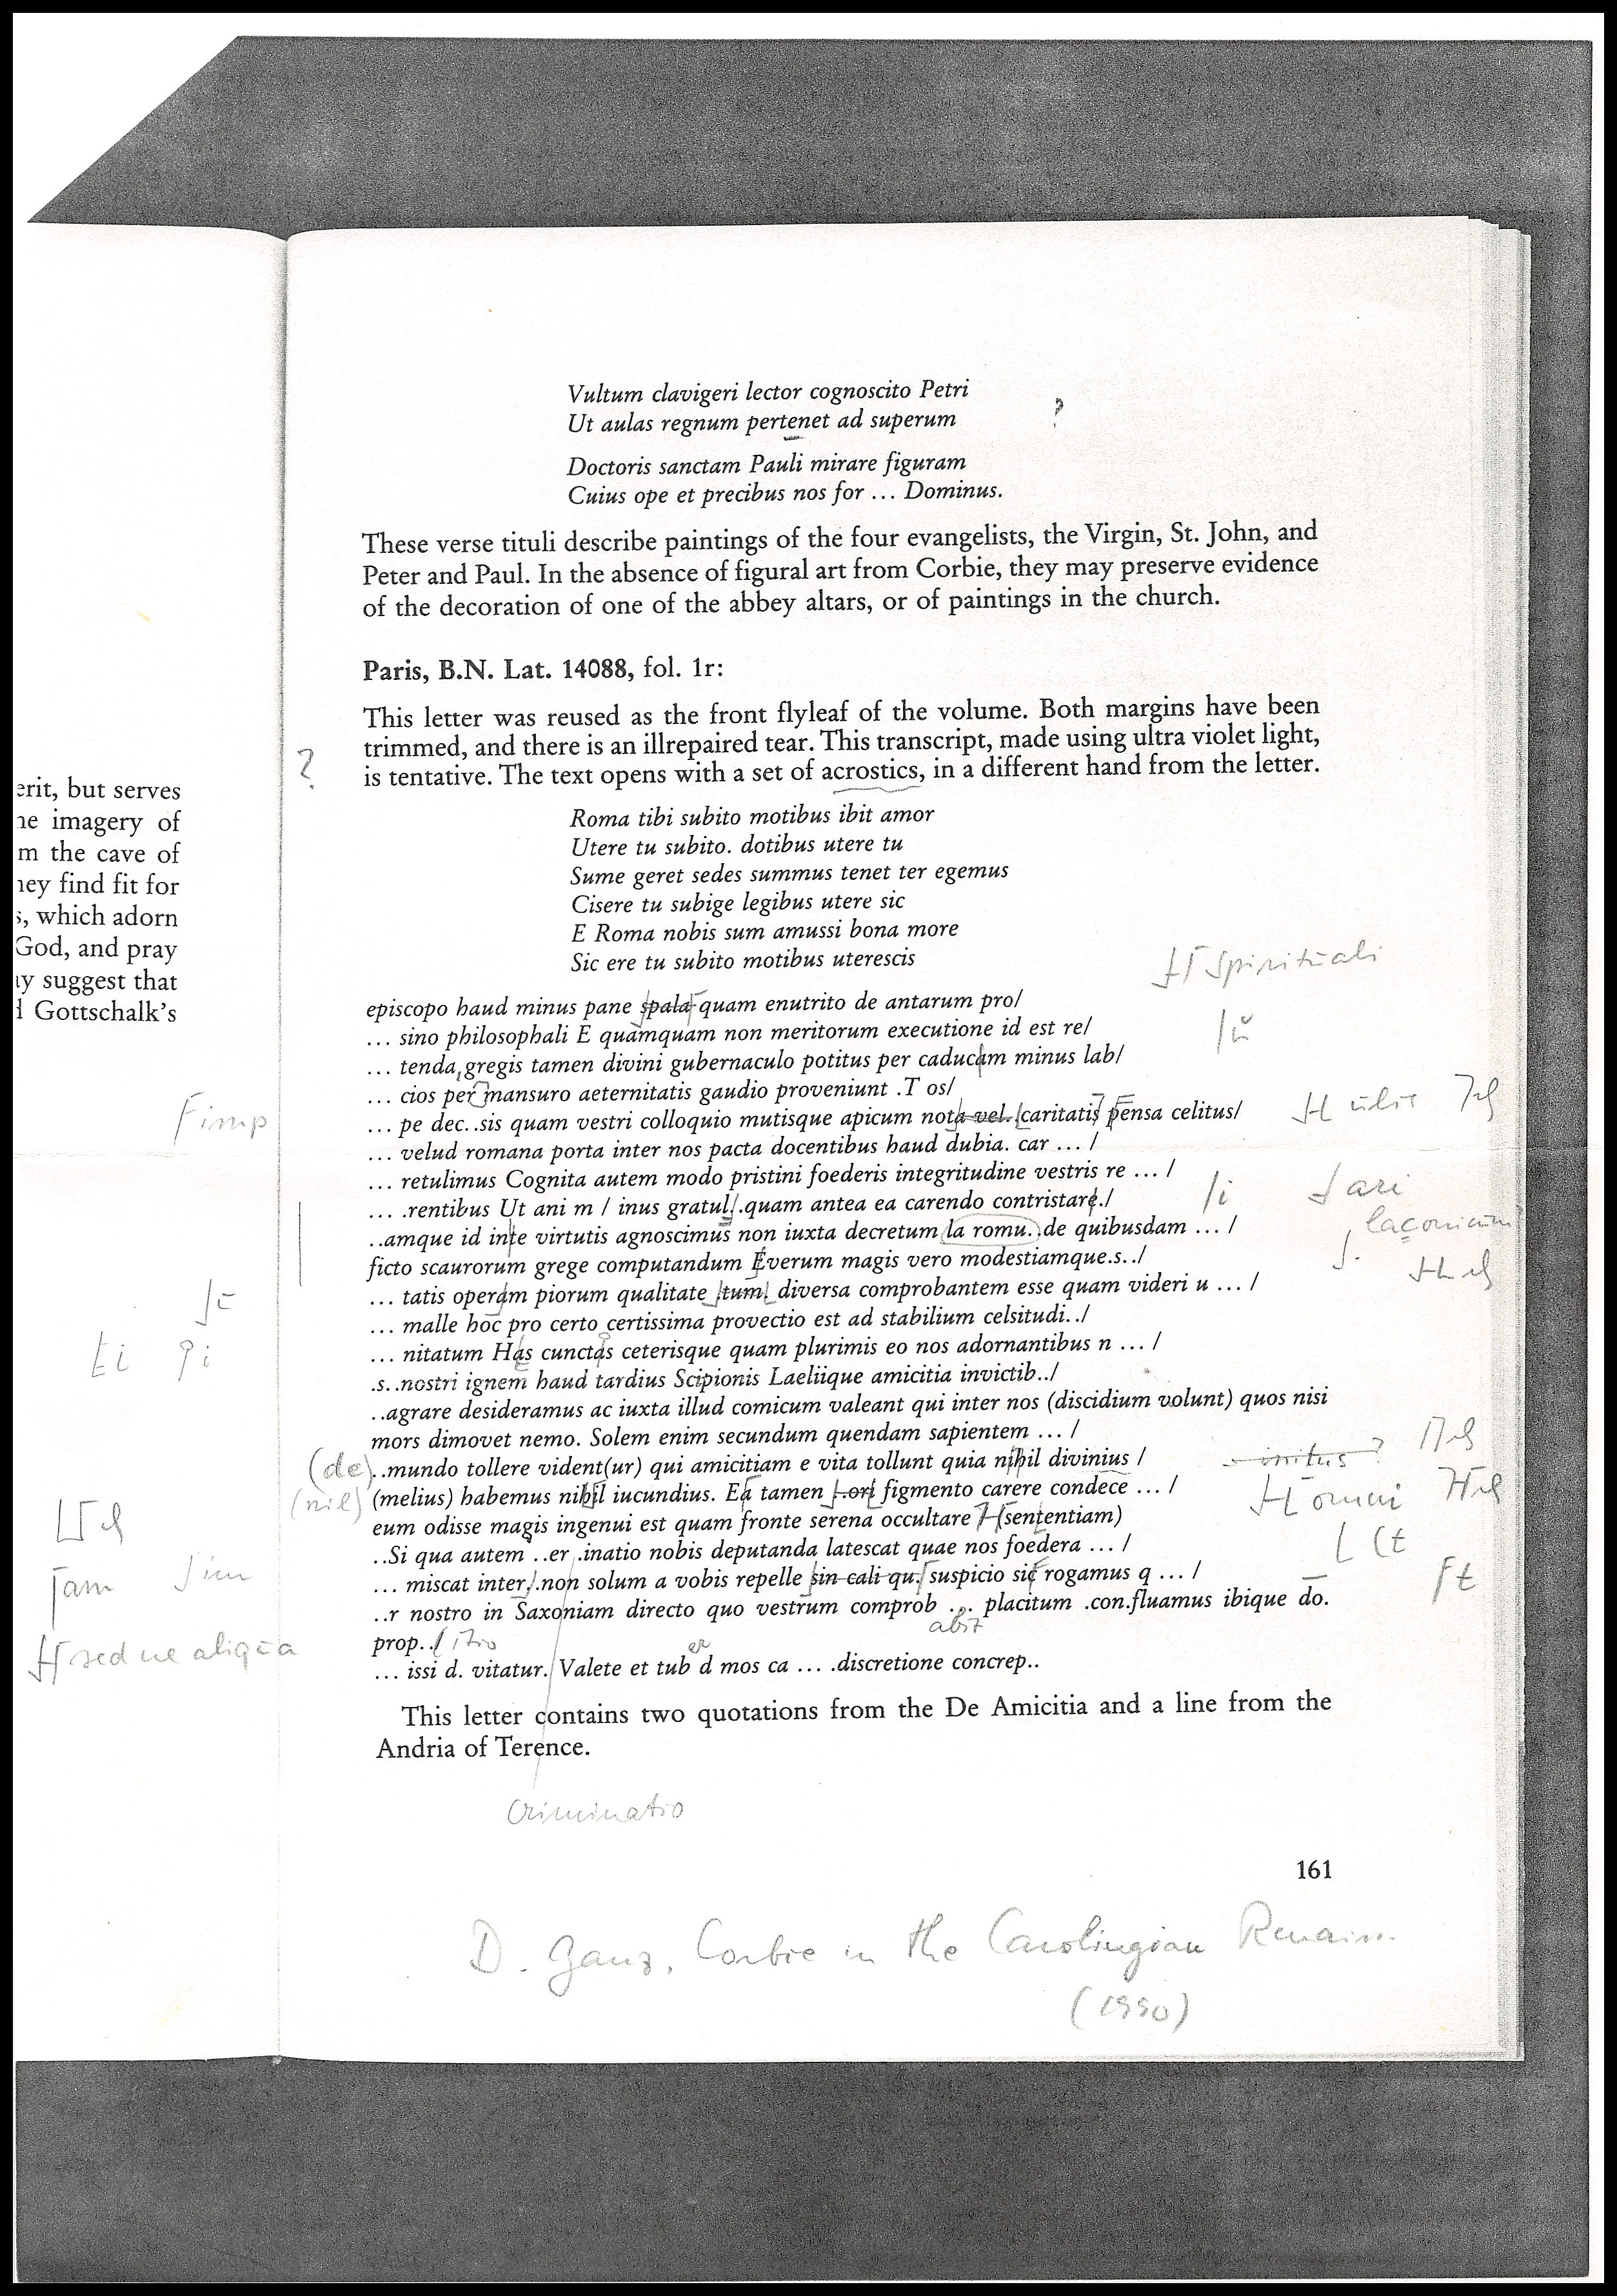 Vultum clavigeri lector cognoscito Petri
Ut aulas regnum pertenet ad superum
?
Doctoris sanctam Pauli mirare figuram
Cuius ope et precibus nos for ... Dominus.
These verse tituli describe paintings of the four evangelists, the Virgin, St. John, and
Peter and Paul. In the absence of figural art from Corbie, they may preserve evidence
of the decoration of one of the abbey altars, or of paintings in the church.
Paris, B.N. Lat. 14088, fol. 1r:
This letter was reused as the front flyleaf of the volume. Both margins have been
trimmed, and there is an illrepaired tear. This transcript, made using ultra violet light,
is tentative. The text opens with a set of acrostics, in a different hand from the letter.
?
erit, but serves
ne imagery of
m the cave of
ney find fit for
s, which adorn
God, and pray
ay suggest that
d Gottschalk's
Roma tibi subito motibus ibit amor
Utere tu subito. dotibus utere tu
Sume geret sedes summus tenet ter egemus
Cisere tu subige legibus utere sic
E Roma nobis sum amussi bona more
Sic ere tu subito motibus uterescis
spirituali
episcopo haud minus pane spala quam enutrito de antarum pro/
... sino philosophali E quamquam non meritorum executione id est re/
... tenda gregis tamen divini gubernaculo potitus per caducam minus lab/
... cios per mansuro aeternitatis gaudio proveniunt .T os/
... pe dec..sis quam vestri colloquio mutisque apicum nota vel. caritatis pensa celitus/
... velud romana porta inter nos pacta docentibus haud dubia. car ... /
... retulimus Cognita autem modo pristini foederis integritudine vestris re ... /
... .rentibus Ut ani m / inus gratul. .quam antea ea carendo contristare./
..amque id inte virtutis agnoscimus non iuxta decretum la romu. .de quibusdam ... /
ficto scaurorum grege computandum Everum magis vero modestiamque.s../
... tatis operam piorum qualitate tum diversa comprobantem esse quam videri u ... /
... malle hoc pro certo certissima provectio est ad stabilium celsitudi../
... nitatum Has cunctas ceterisque quam plurimis eo nos adornantibus n ... /
.s..nostri ignem haud tardius Scipionis Laeliique amicitia invictib../
..agrare desideramus ac iuxta illud comicum valeant qui inter nos (discidium volunt) quos nisi
mors dimovet nemo. Solem enim secundum quendam sapientem ... /
(de) ..mundo tollere vident(ur) qui amicitiam e vita tollunt quia nihil divinius /
(nil) (melius) habemus nihil iucundius. Ea tamen .ori figmento carere condece ... /
eum odisse magis ingenui est quam fronte serena occultare (sententiam)
..Si qua autem ..er .inatio nobis deputanda latescat quae nos foedera ... /
... miscat inter. .non solum a vobis repelle sin cali qu. suspicio sic rogamus q ... /
..r nostro in Saxoniam directo quo vestrum comprob ... placitum .con.fluamus ibique do.
abit
prop../ itio
... issi d. vitatur. Valete et tub d mos ca ... .discretione concrep..
er
This letter contains two quotations from the De Amicitia and a line from the
Andria of Terence.
criminatio
161
D. Ganz, Corbie in the Carolingian Renaiss.
(1990)